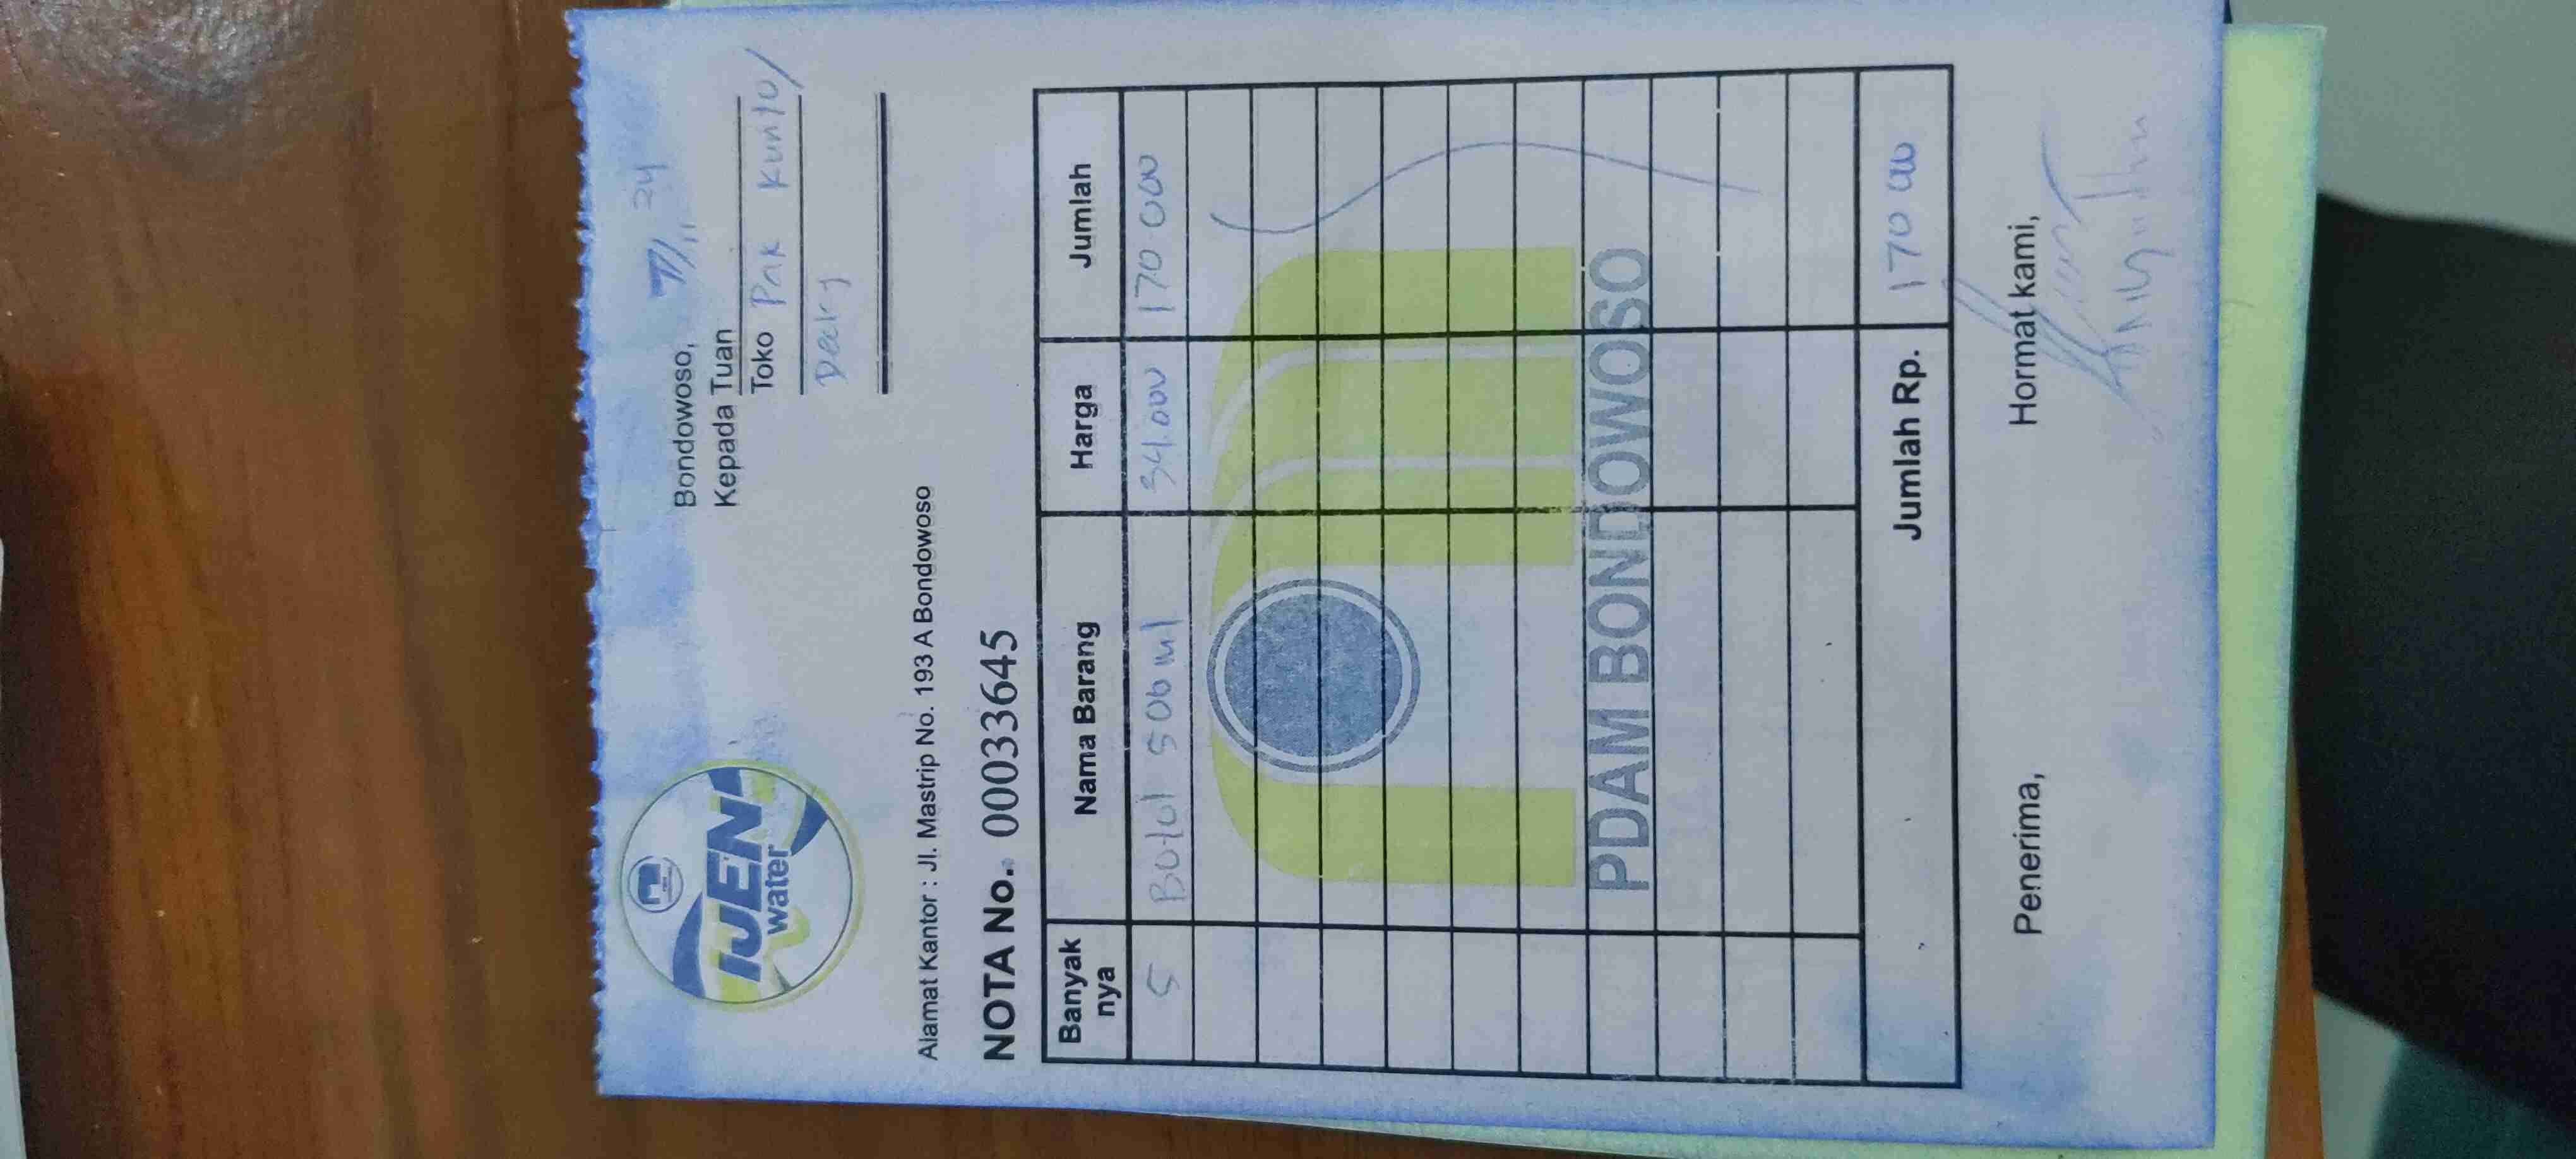 IJEN
water
Bondowoso, 7/11 24
Kepada Tuan
Toko Pak Kuntu/
Decky
Alamat Kantor : Jl. Mastrip No. 193 A Bondowoso
NOTA No. 00033645
Banyak nya Nama Barang Harga Jumlah
5 Botol 500 ml 34.000 170 000
PDAM BONDOWOSO
Jumlah Rp. 170 000
Penerima, Hormat kami,